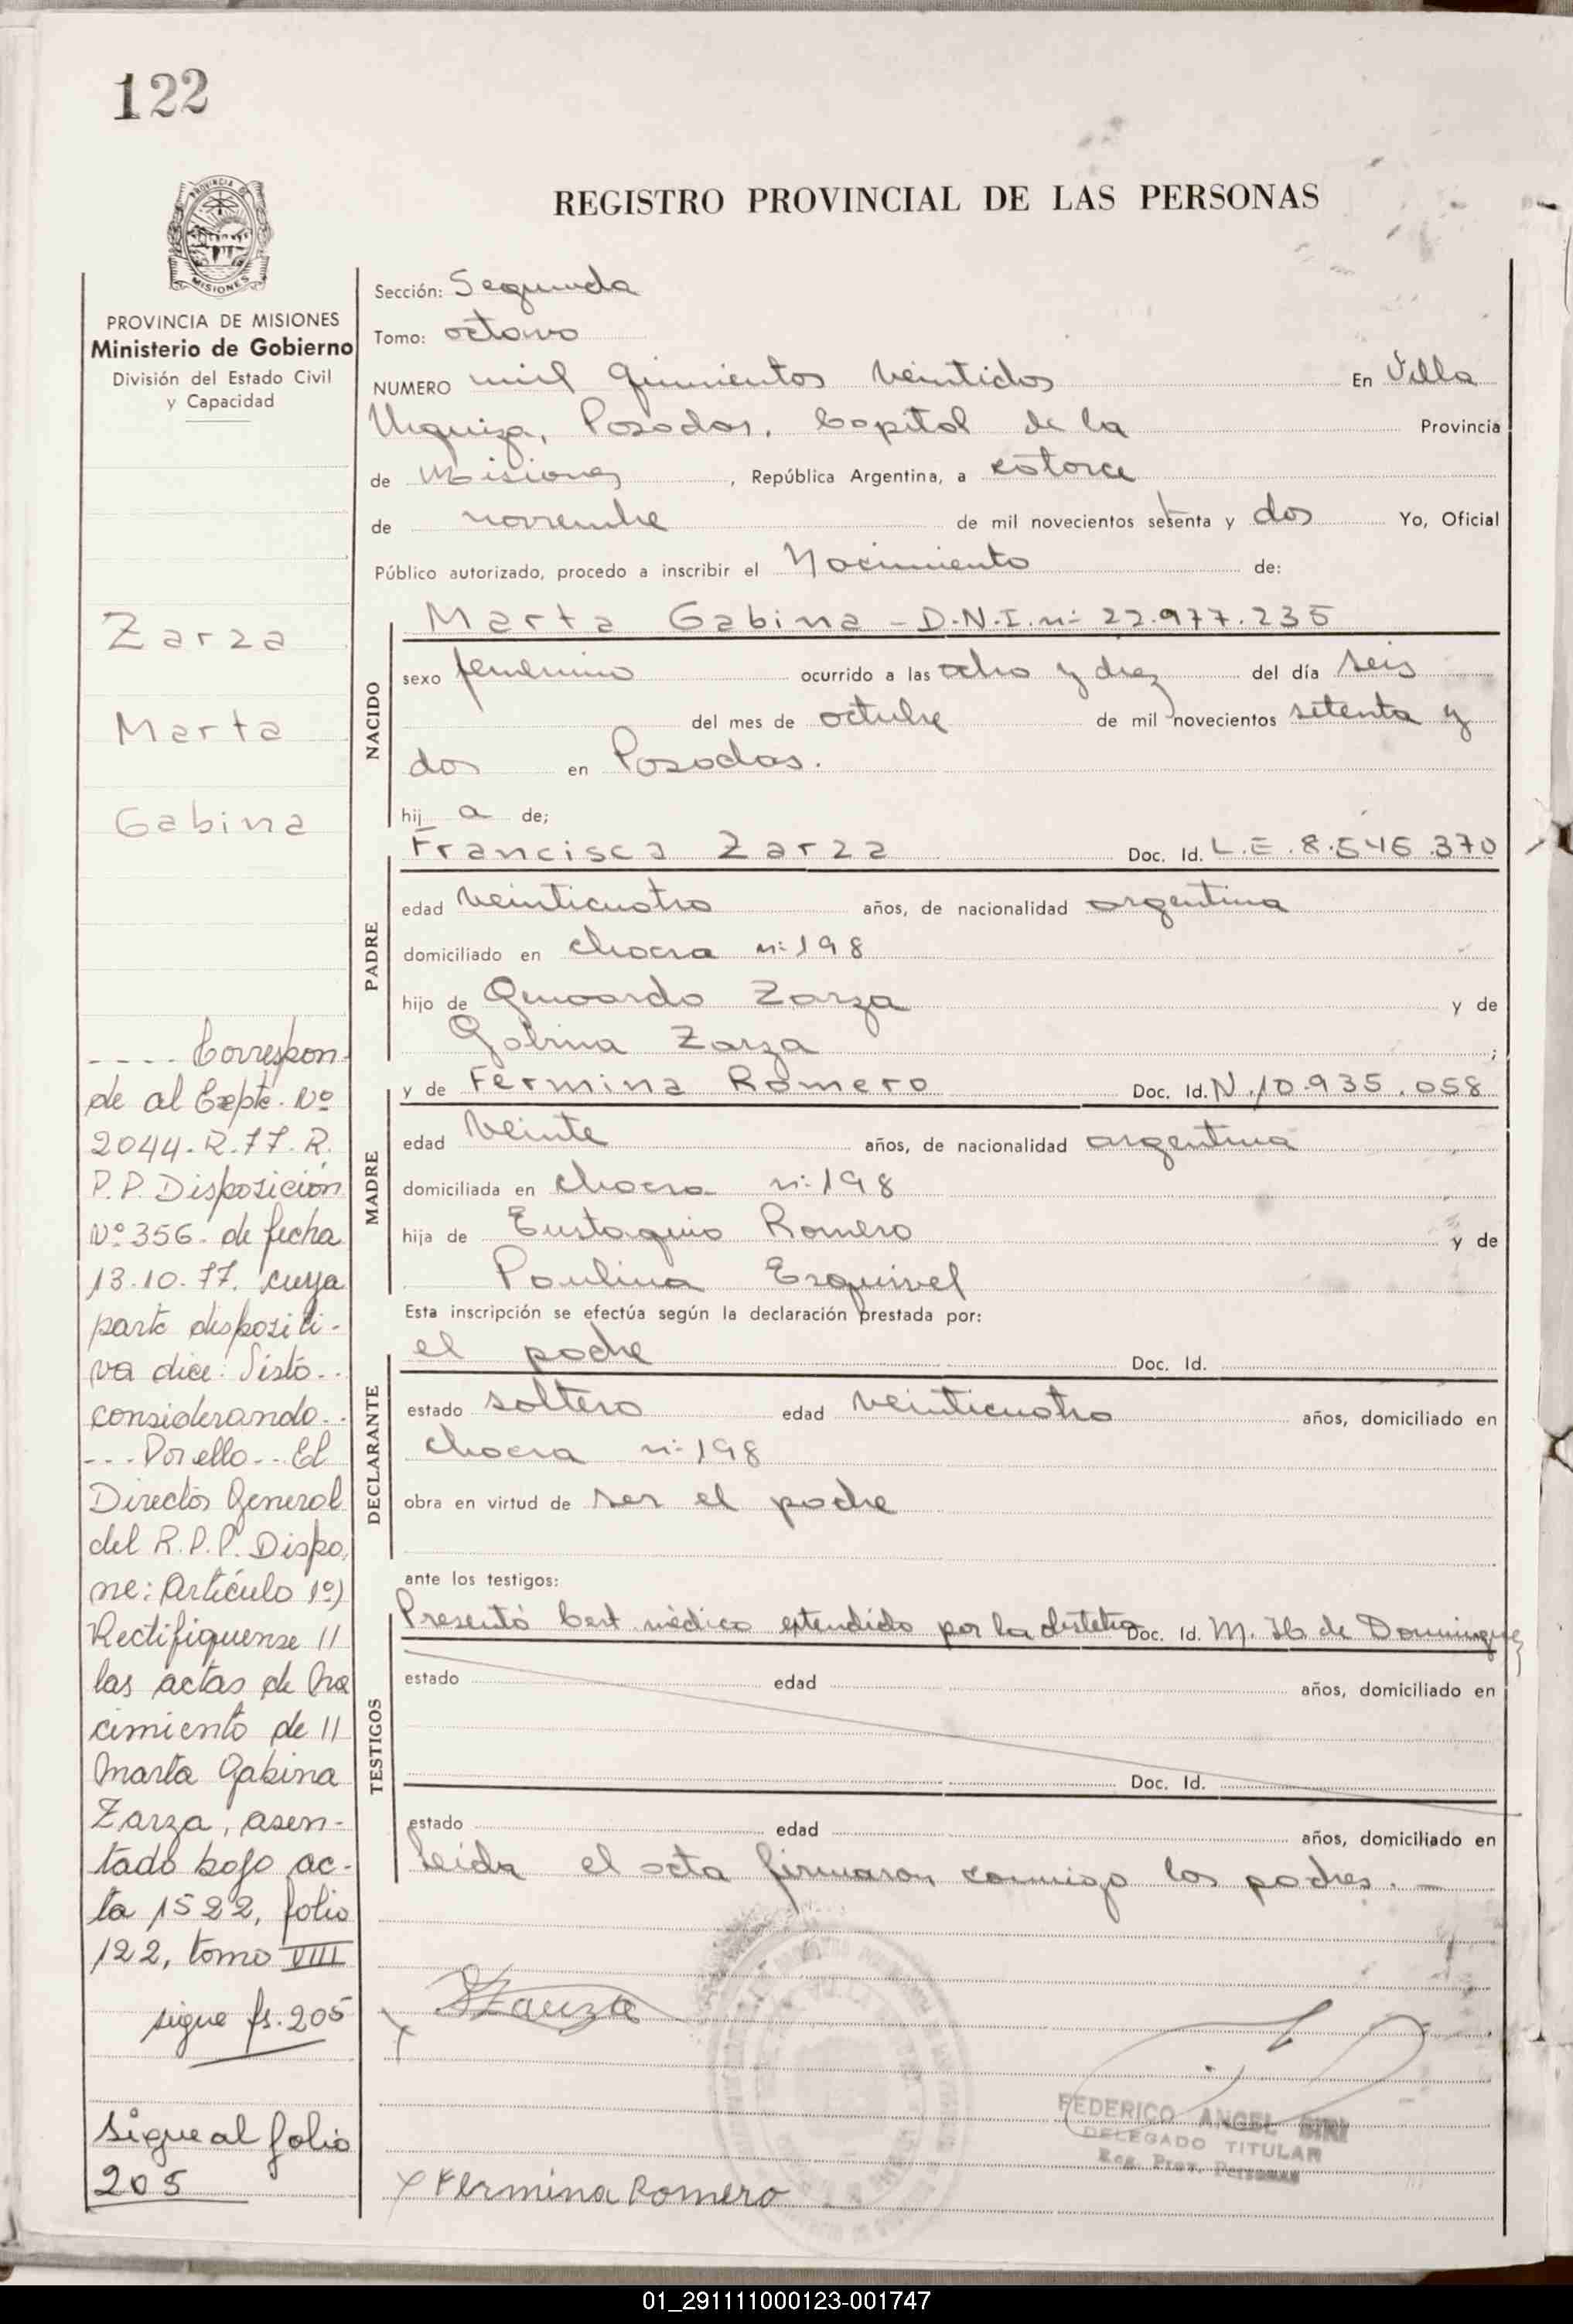 122
REGISTRO PROVINCIAL DE LAS PERSONAS
PROVINCIA DE MISIONES
Ministerio de Gobierno
División del Estado Civil
y Capacidad
Zarza
Marta
Gabina
---- Correspon-
de al Expte. Nº
2044-R-77-R.
P.P. Disposición
Nº 356- de fecha
13.10.77. cuya
parte dispositi-
va dice: Visto...
considerando...
--- Por ello--- El
Director General
del R.P.P. Dispo-
ne: Artículo 1º)
Rectifiquense //
las actas de Na
cimiento de //
Marta Gabina
Zarza, asen-
tado bajo ac-
ta 1522, folio
122, tomo VIII
sigue fs. 205
sigue al folio
205
Sección: Segunda
Tomo: octavo
NUMERO mil quinientos veintidos En Villa
Urquiza, Posadas, Capital de la Provincia
de Misiones, República Argentina, a catorce
de noviembre de mil novecientos setenta y dos Yo, Oficial
Público autorizado, procedo a inscribir el Nacimiento de:
NACIDO
Marta Gabina - D.N.I. nº 22.977.235
sexo femenino ocurrido a las ocho y diez del día seis
del mes de octubre de mil novecientos setenta y
dos en Posadas.
hij a de;
PADRE
Francisco Zarza Doc. Id. L.E. 8.546.370
edad veinticuatro años, de nacionalidad argentina
domiciliado en chacra nº 198
hijo de Zarza y de
Gabina Zarza ;
MADRE
y de Fermina Romero Doc. Id. N. 10.935.058
edad veinte años, de nacionalidad argentina
domiciliada en chacra nº 198
hija de Eustaquio Romero y de
Paulina Esquivel
Esta inscripción se efectúa según la declaración prestada por:
DECLARANTE
el padre Doc. Id.
estado soltero edad veinticuatro años, domiciliado en
chacra nº 198
obra en virtud de ser el padre
ante los testigos:
TESTIGOS
Presentó Cert. médico extendido por la Doc. Id. M. de Dominguez
estado edad años, domiciliado en
Doc. Id.
estado edad años, domiciliado en
Leida el acta firmaron conmigo los padres.-
FZarza
FEDERICO ANGEL
DELEGADO TITULAR
Reg. Prov. Personas
x Fermina Romero
01_291111000123-001747